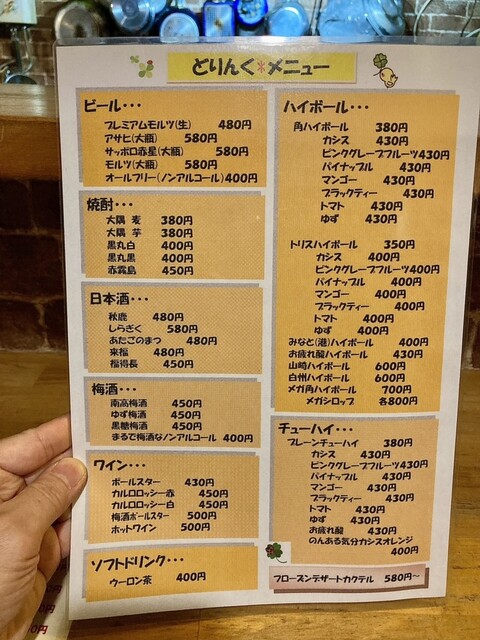 どりんく*メニュー
ビール・・・
プレミアムモルツ(生) 480円
アサヒ(大瓶) 580円
サッポロ赤星(大瓶) 580円
モルツ(大瓶) 580円
オールフリー(ノンアルコール)400円
焼酎・・・
大隅 麦 380円
大隅 芋 380円
黒丸白 400円
黒丸黒 400円
赤霧島 450円
日本酒・・・
秋鹿 480円
しらぎく 580円
あたごのまつ 480円
来福 480円
福得長 450円
梅酒・・・
南高梅酒 450円
ゆず梅酒 450円
黒糖梅酒 450円
まるで梅酒なノンアルコール 400円
ワイン・・・
ポールスター 430円
カルロロッシー赤 450円
カルロロッシー白 450円
梅酒ポールスター 500円
ホットワイン 500円
ソフトドリンク・・・
ウーロン茶 400円
ハイボール・・・
角ハイボール 380円
カシス 430円
ピンクグレープフルーツ430円
パイナップル 430円
マンゴー 430円
ブラックティー 430円
トマト 430円
ゆず 430円
トリスハイボール 350円
カシス 400円
ピンクグレープフルーツ400円
パイナップル 400円
マンゴー 400円
ブラックティー 400円
トマト 400円
ゆず 400円
みなと(港)ハイボール 400円
お疲れ酸ハイボール 430円
山崎ハイボール 600円
白州ハイボール 600円
メガ角ハイボール 700円
メガシロップ 各800円
チューハイ・・・
プレーンチューハイ 380円
カシス 430円
ピンクグレープフルーツ430円
パイナップル 430円
マンゴー 430円
ブラックティー 430円
トマト 430円
ゆず 430円
お疲れ酸 430円
のんある気分カシスオレンジ
400円
フローズンデザートカクテル 580円~